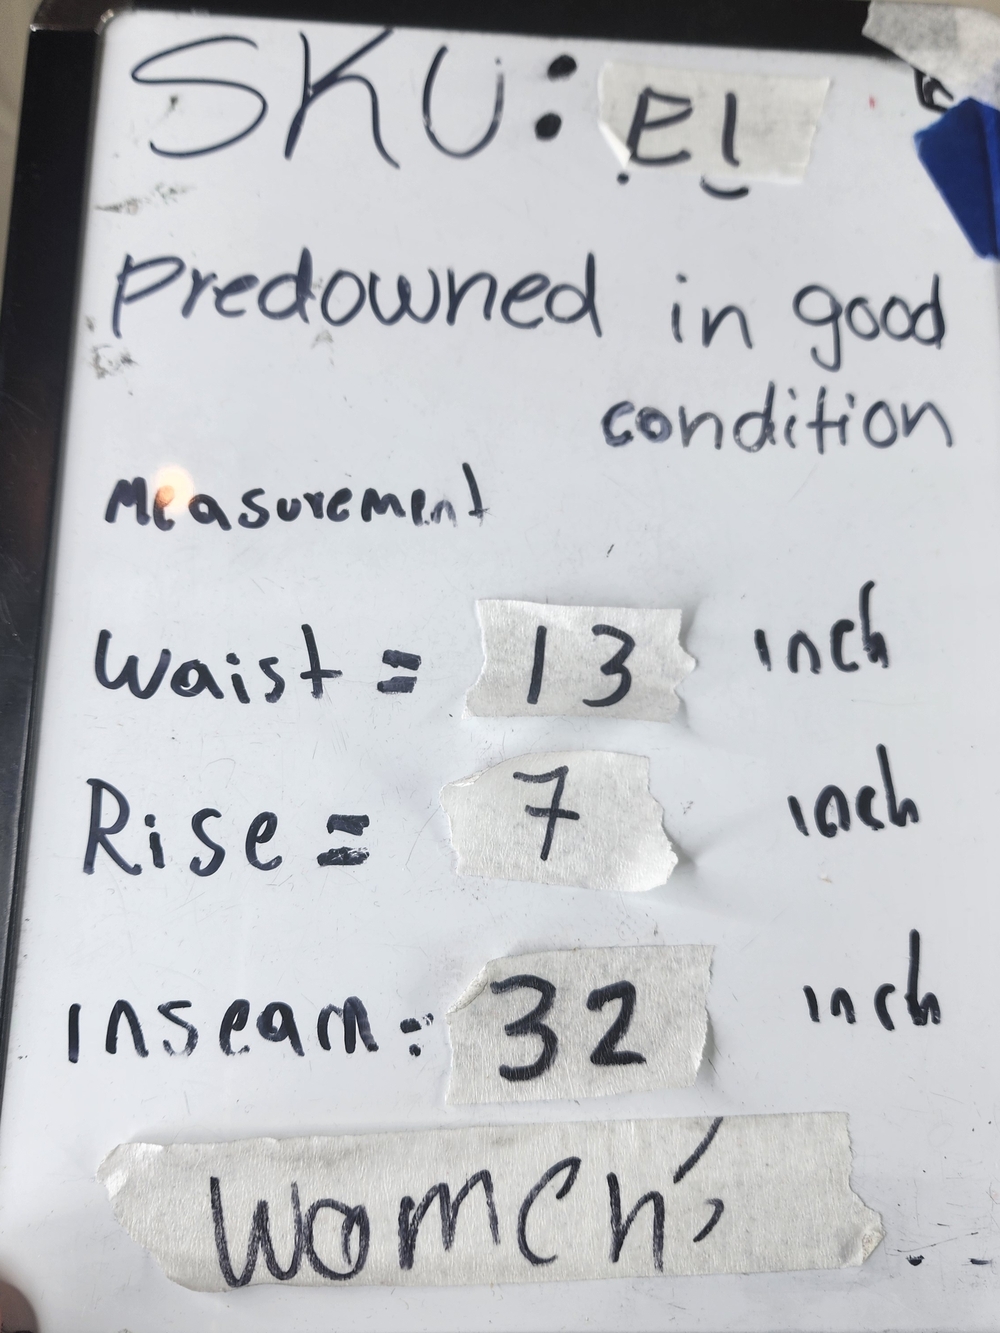 SKU: E1
Predowned in good
condition
Measurement
Waist = 13 inch
Rise = 7 inch
Inseam: 32 inch
Women'